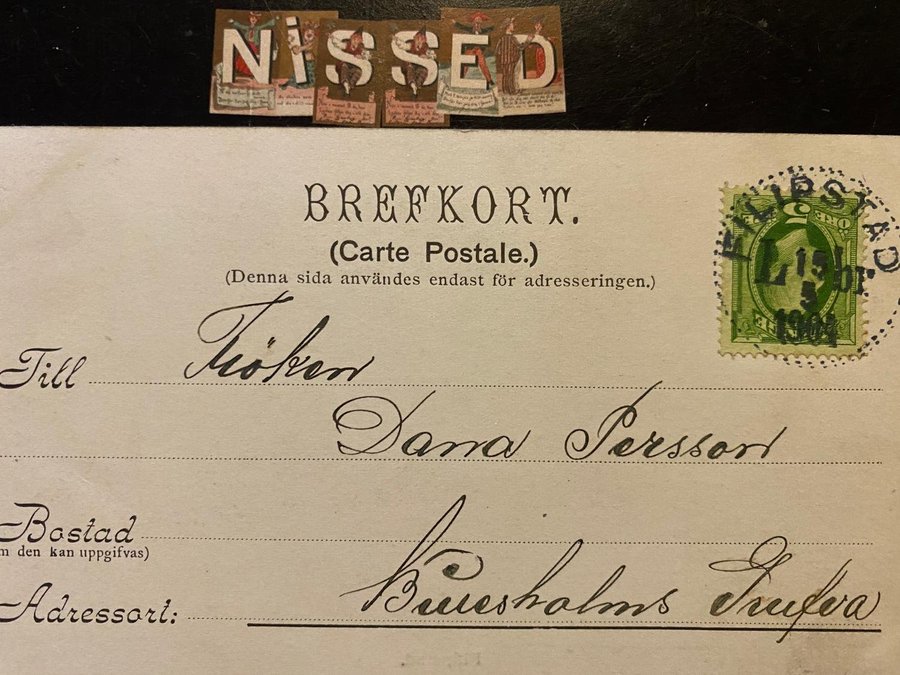 NISSED
BREFKORT.
(Carte Postale.)
(Denna sida användes endast för adresseringen.)
FILIPSTAD
15
5
1904
Till Fröken
Dana Persson
Bostad
m den kan uppgifvas)
Adressort: Grufva